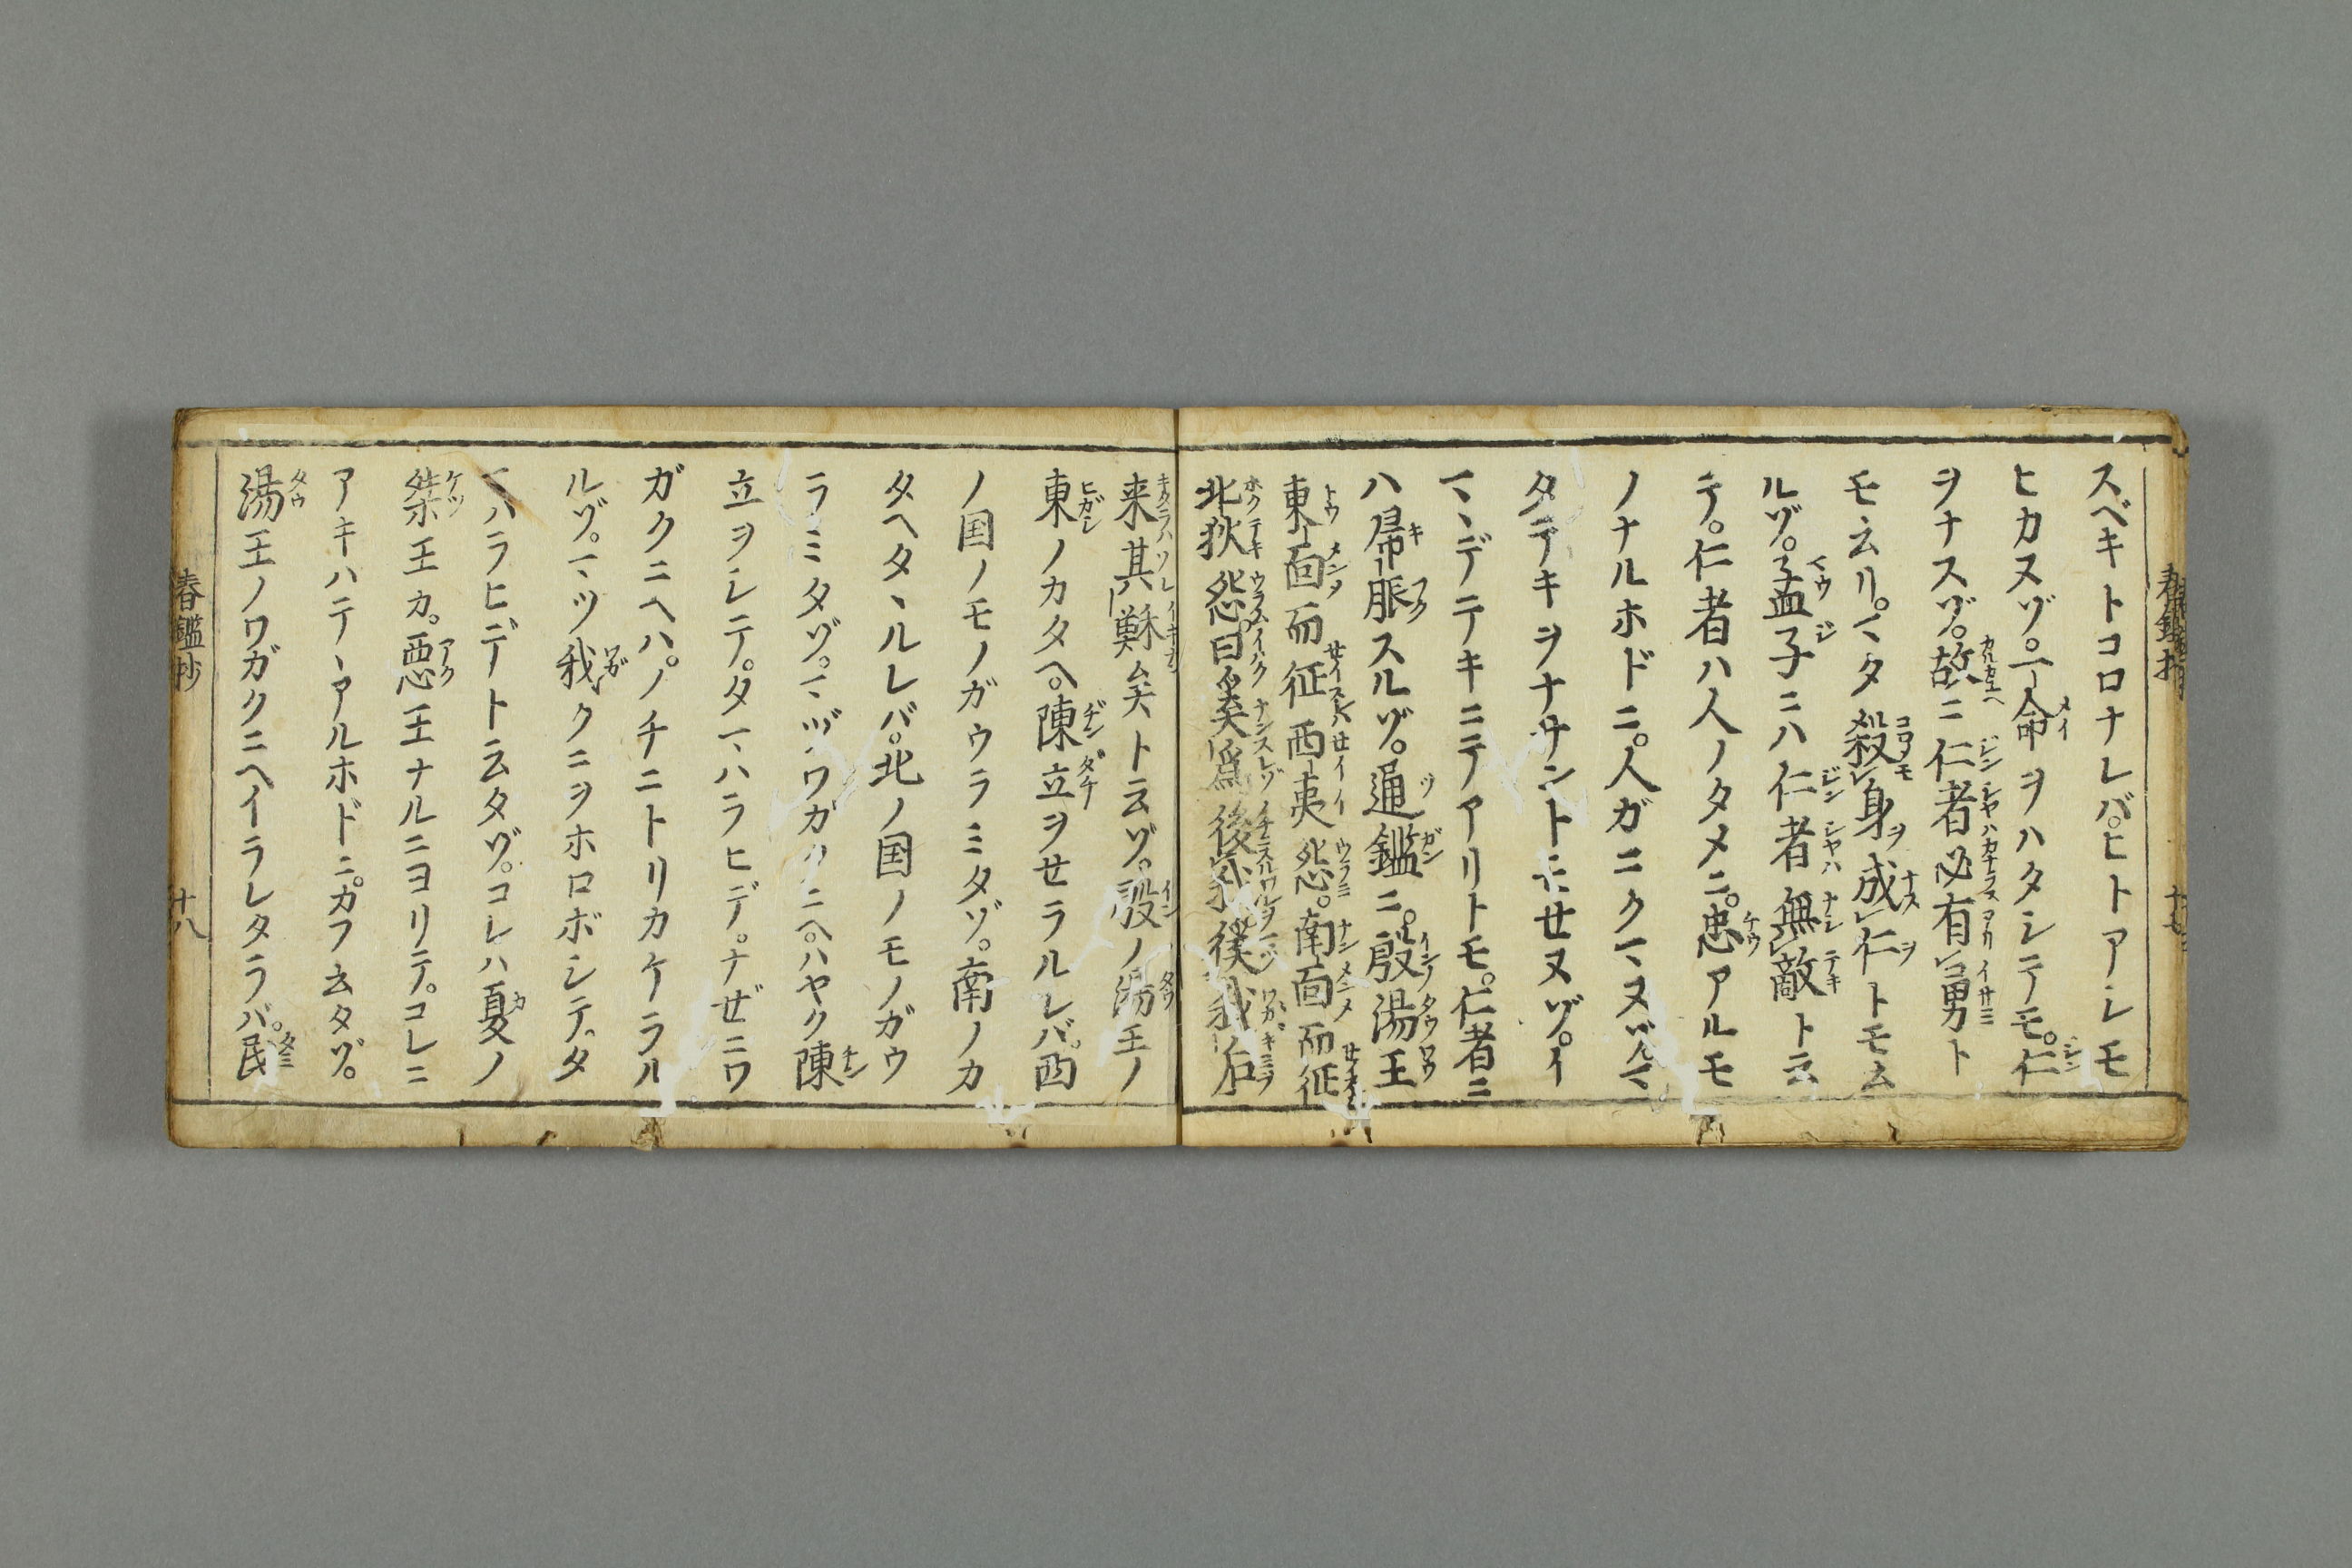 スベキトコロナレバ。ヒトアシモ
ヒカヌゾ。一命ヲハタシテモ。仁
ヲナスゾ。故ニ仁者必有勇ト
モ云リ。マタ殺身成仁トモ云
ルゾ。孟子ニハ仁者無敵ト云
テ。仁者ハ人ノタメニ。忠アルモ
ノナルホドニ。人ガニクマヌゾ。イ
タテキヲナサントニせヌゾ。イ
マヽデテキニテアリトモ。仁者ニ
ハ帰服スルゾ。通鑑ニ。殷湯王
東面而征西夷怨。南面而征
北狄怨。曰奚為後我徯我后
来其蘇矣ト云ゾ。殷ノ湯王ノ
東ノカタヘ。陳立ヲせラルレバ。西
ノ国ノモノガウラミタゾ。南ノカ
タヘタヽルレバ。北ノ国ノモノガウ
ラミタゾ。マヅワガクニヘ。ハヤク陳
立ヲシテ。タマハラヒデ。ナぜニワ
ガクニヘハ。ノチニトリカケラル
ルゾ。マヅ我クニヲホロボシテ。タ
マハラヒデト云タゾ。コレハ夏ノ
桀王カ。悪王ナルニヨリテ。コレニ
アキハテヽアルホドニ。カフ云タゾ。
湯王ノワガクニヘイラレタラバ。民
春鑑抄 十八